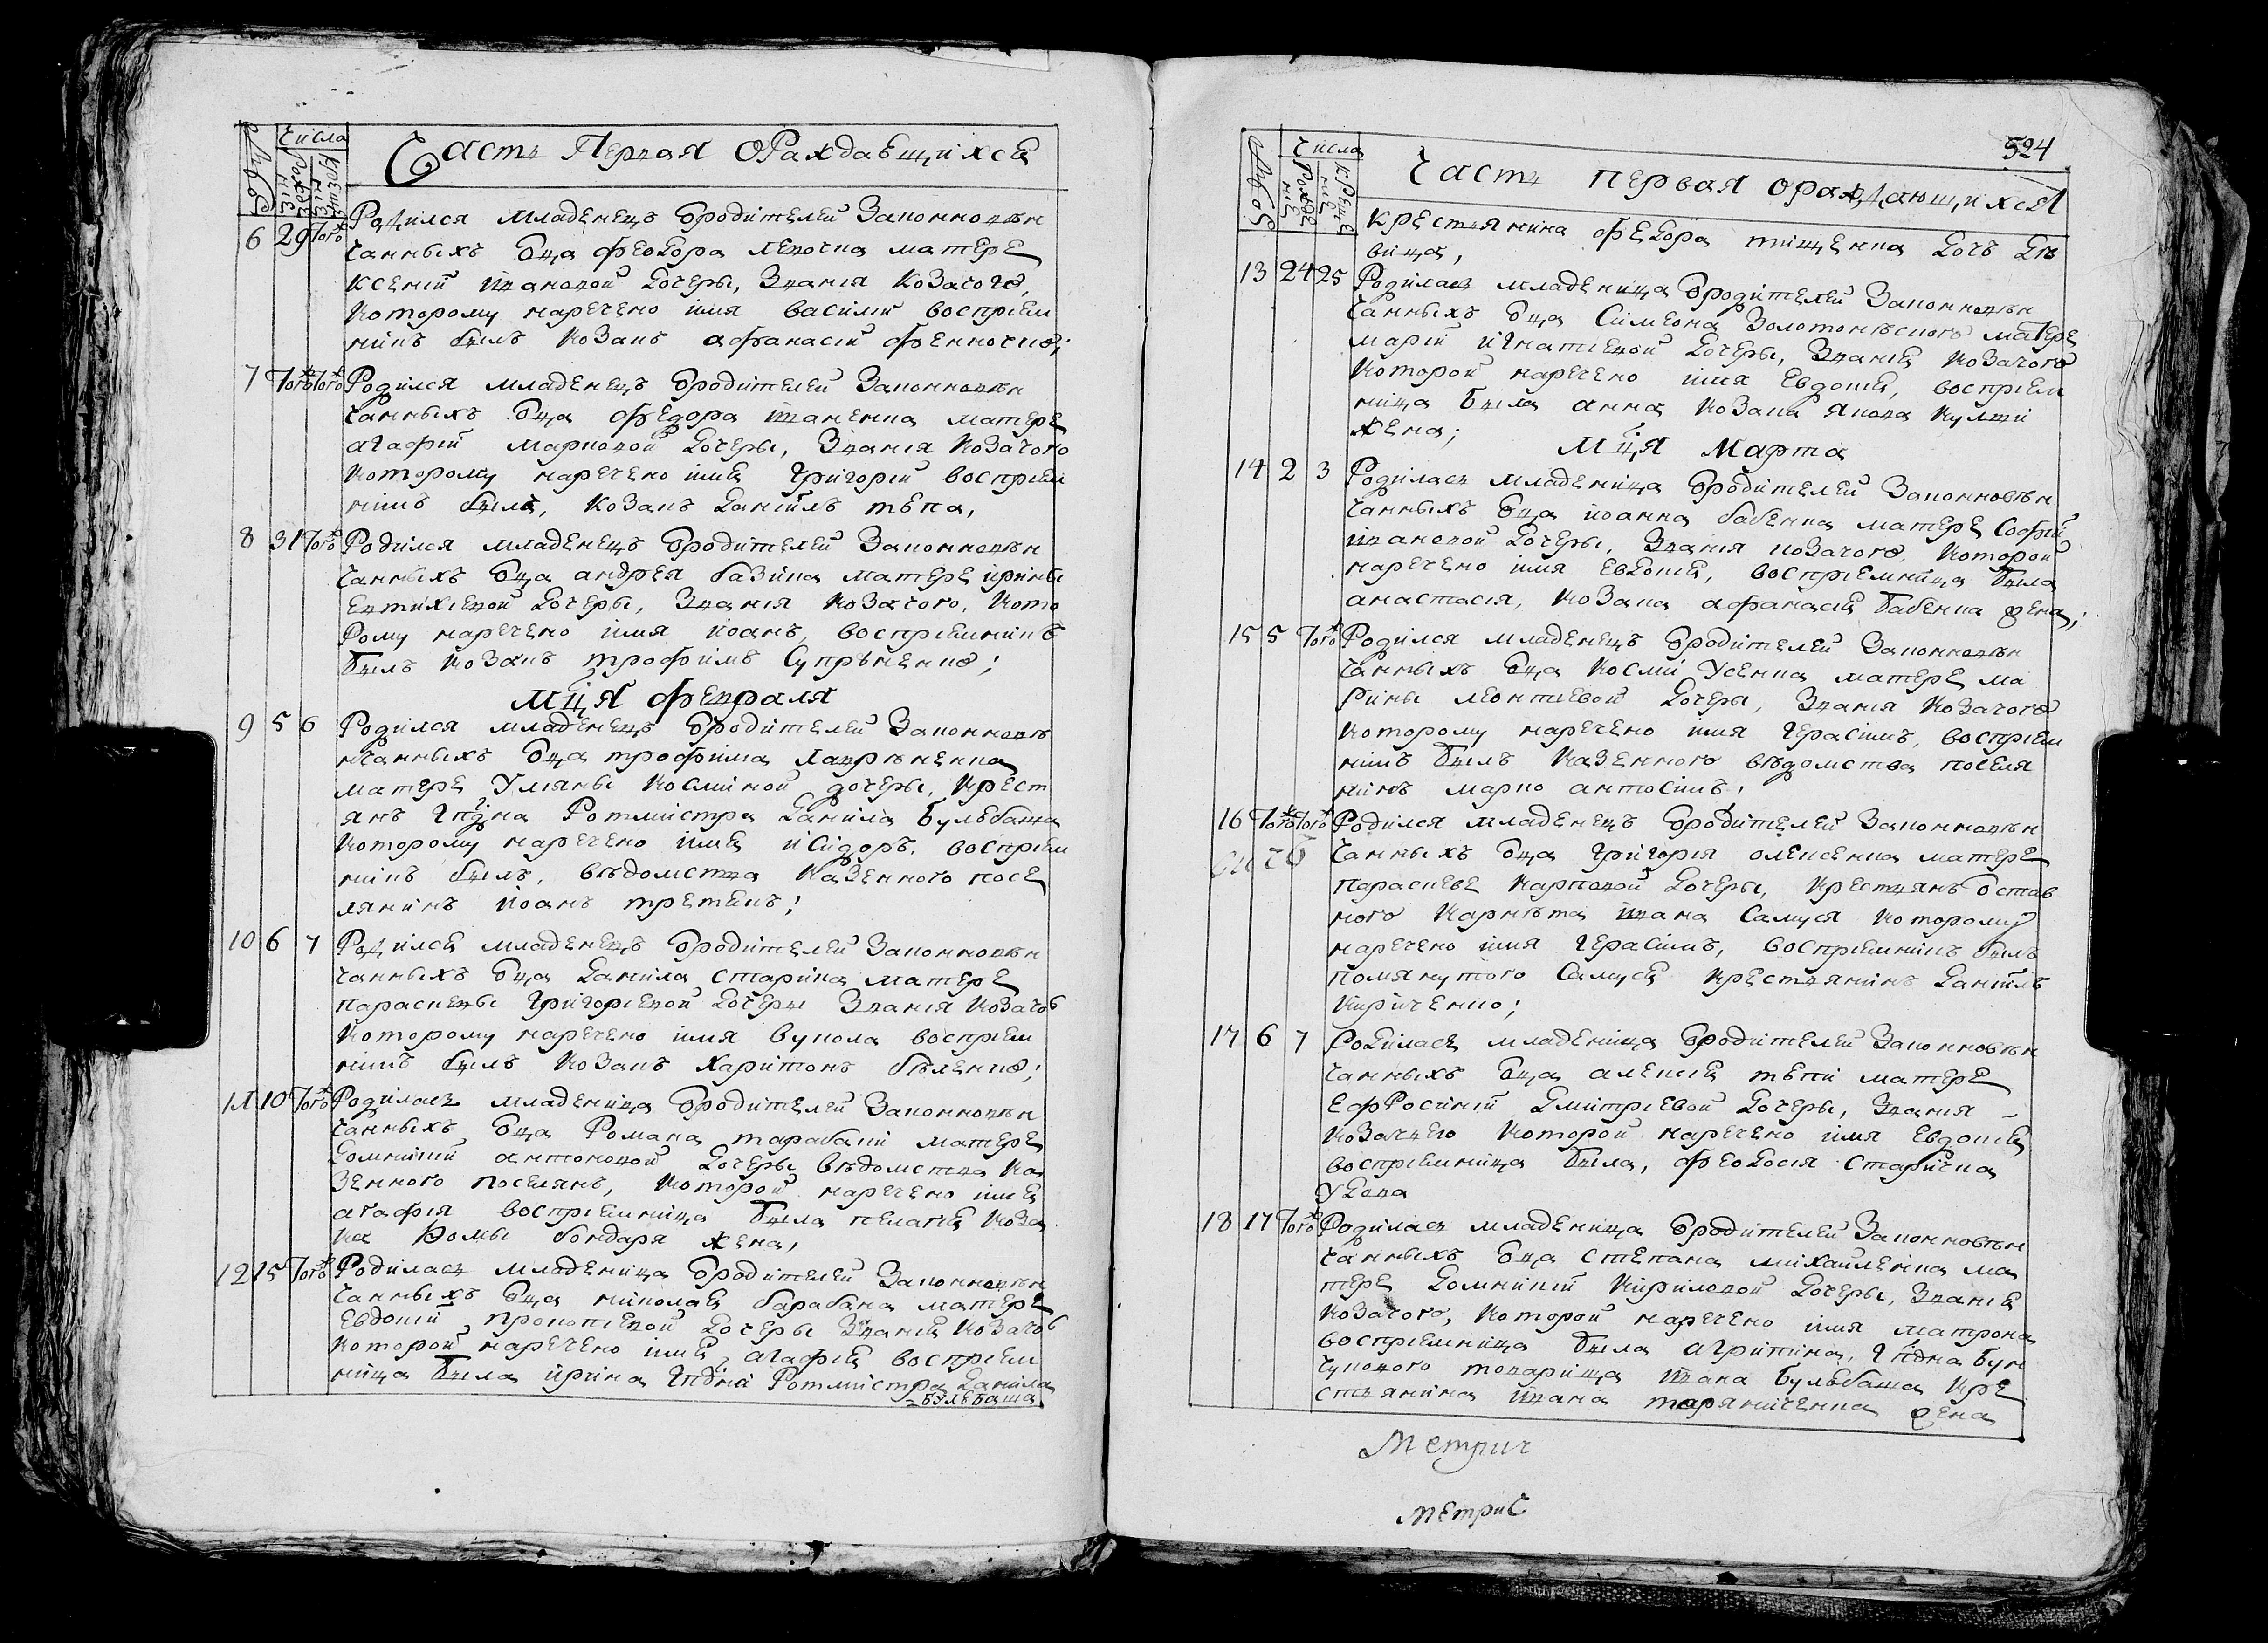 Числа
Часть Первая О Раждаещихся
6 29 Тогож Родился младенецъ Ѿродителей Законновѣн
чанныхъ Ѿца Феодора матере
Ксении Ивановой дочеры, Званія Козачого,
которому наречено имя василий восприем
никъ былъ Козакъ афанасій
7 Тогож Тогож Родился младенецъ Ѿродителей Законновѣн
чанныхъ Ѿца федора Иваненка матере
агафии марковой дочеры, Званія Козачого
которому наречено имя Григорий восприем
никъ былъ, Козакъ Даниилъ тѣпа,
8 31 Тогож Родился младенецъ Ѿродителей Законновѣн
чанныхъ Ѿца андрея базика матере ирины
Евтихіевой дочеры, Званія Козачого, Кото
рому наречено имя иоанъ, восприемникъ
былъ Козакъ трофимъ Супрѣненко;
мца февраля
9 5 6 Родился младенецъ Ѿродителей Законновѣ
нчанныхъ Ѿца трофима Лаврѣненка
матере Улияны Космікой дочеры, Крест
янъ Гпдна Ротмистра Данила Бульбаша
которому наречено имя исидоръ, восприем
никъ былъ, вѣдомства Казенного посе
лянинъ иоанъ третякъ;
10 6 7 Родился младенецъ Ѿродителей Законновѣн
чанныхъ Ѿца Данила Старика матере
параскевы Григориевой дочеры Званія Козачо
которому наречено имя вукола восприем
никъ былъ Козакъ Харитонъ бѣленко;
11 10 Тогож Родилась младеница Ѿродителей Законновѣн
чанныхъ Ѿца Романа тарабаки матере
Домникии антоновой дочеры вѣдомства Ка
зенного поселянъ, которой наречено имя
агафія восприемница была пелагия Коза
ка Фомы бондаря жена,
12 15 Тогож Родилась младеница Ѿродителей Законновѣн
чанныхъ Ѿца николая барабана матере
Евдокии прокопиевой дочеры Званія Козачо
которой наречено имя агафия восприем
ница была ирина Гпдна Ротмистра Данила
Бульбаша
524
Числа
Часть первая о раждающихся
крестянина федора тищенка дочъ дѣ
вица,
13 24 25 Родилась младеница Ѿродителей Законновѣн
чанныхъ Ѿца Симеона Золотонѣского матере
марии игнатиевой дочеры, Званія Козачого
которой наречено имя Евдокия, восприем
ница была анна Козака якова
жена;
мца марта
14 2 3 Родилась младеница Ѿродителей Законновѣн
чанныхъ Ѿца иоанна бабенка матере Софии
Ивановой дочеры, Званія козачого, которой
наречено имя Евдокия, восприемница была
анастасія, Козака афанасия бабенка жена;
15 5 Тогож Родился младенецъ Ѿродителей Законновѣн
чанныхъ Ѿца Косми Усенка матере ма
рины леонтиевой дочеры, Званія Козачого
которому наречено имя Герасимъ, восприем
никъ былъ Казенного вѣдомства поселя
нинъ марко антосикъ,
16 Тогож Тогож Родился младенецъ Ѿродителей Законновѣн
чанныхъ Ѿца Григорія олексенка матере
параскеве Карповой дочеры, Крестянъ Ѿстав
ного Карнѣта Ивана Самуся которому
наречено имя Герасимъ, восприемникъ былъ
помянутого Самуся крестянинъ Даниилъ
Кириченко;
17 6 7 Родилась младеница Ѿродителей Законновѣн
чанныхъ Ѿца алексия тѣпи матере
Ефросинии Дмитриевой дочеры, Званія
Козачего которой наречено имя Евдокия
восприемница была, феодосія Старичка
удова
18 17 Тогож Родилась младеница Ѿродителей Законновѣн
чанныхъ Ѿца Степана михайленка ма
тере Домникии Кириловой дочеры, Званія
Козачого, которой наречено имя матрона
восприемница была агрипина, Гпдна бун
чукового товарища Ивана Бульбаша Кре
стянина Ивана жена
Метрич
метрич